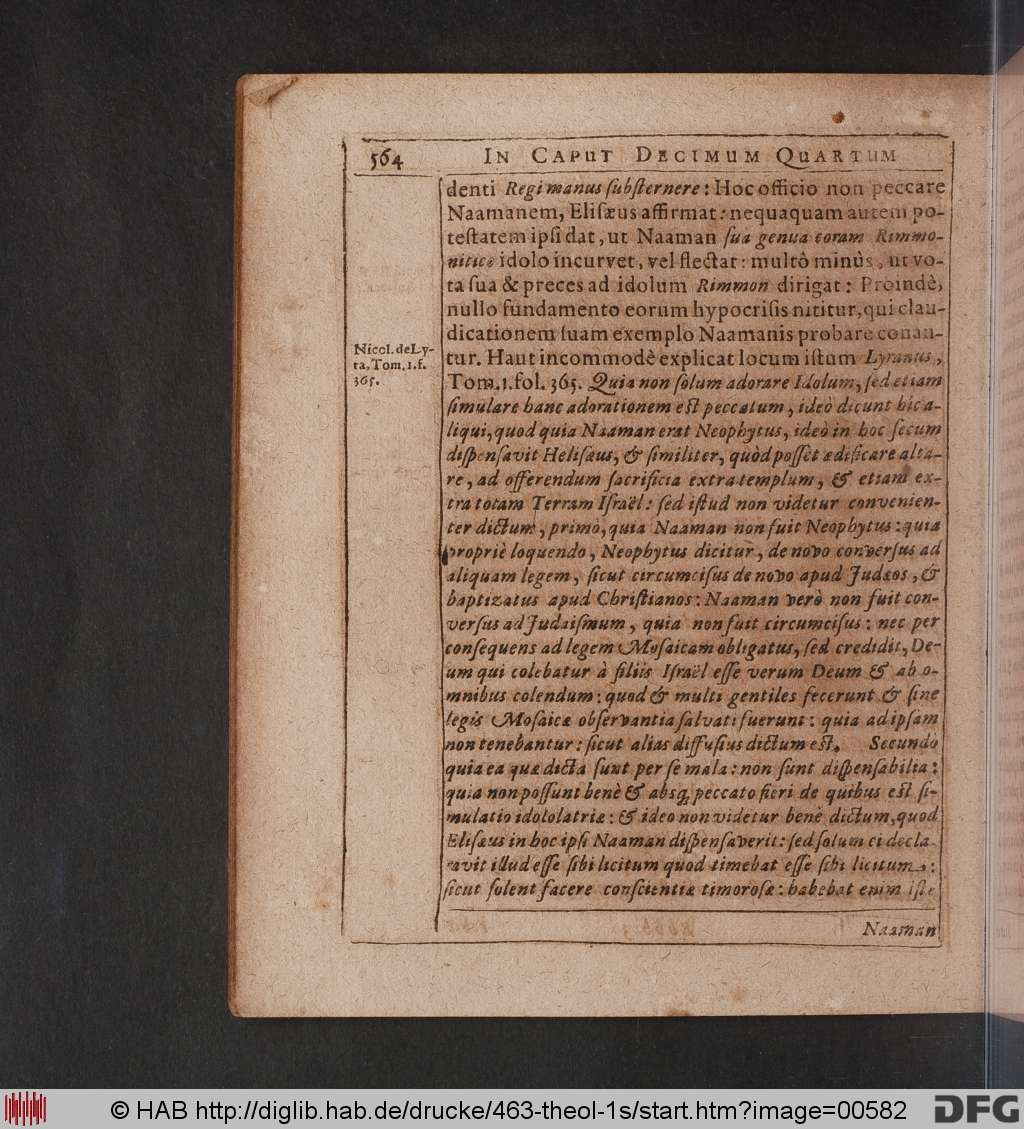 564 IN CAPUT DECIMUM QUARTUM
denti Regi manus ſubſternere: Hoc officio non peccare
Naamanem, Eliſæus affirmat: nequaquam autem po-
teſtatem ipſi dat, ut Naaman ſua genua coram Rimmo-
nitico idolo incurvet, vel flectat: multò minùs, ut vo-
ta ſua & preces ad idolum Rimmon dirigat: Proindè,
nullo fundamento eorum hypocriſis nititur, qui clau-
dicationem ſuam exemplo Naamanis probare conan-
tur. Haut incommodè explicat locum iſtum Lyranus,
Tom. 1. fol. 365. Quia non ſolum adorare Idolum, ſed etiam
ſimulare hanc adorationem eſt peccatum, ideò dicunt hic a-
liqui, quod quia Naaman erat Neophytus, ideò in hoc ſecum
diſpenſavit Heliſæus, & ſimiliter, quòd poſſet ædificare alta-
re, ad offerendum ſacrificia extra templum, & etiam ex-
tra totam Terram Iſraël: ſed iſtud non videtur convenien-
ter dictum, primò, quia Naaman non fuit Neophytus: quia
propriè loquendo, Neophytus dicitur, de novo converſus ad
aliquam legem, ſicut circumciſus de novo apud Judæos, &
baptizatus apud Chriſtianos: Naaman verò non fuit con-
verſus ad Judaiſmum, quia non fuit circumciſus: nec per
conſequens ad legem Moſaicam obligatus, ſed credidit, De-
um qui colebatur à filiis Iſraël eſſe verum Deum & ab o-
mnibus colendum: quod & multi gentiles fecerunt & ſine
legis Moſaicæ obſervantia ſalvati fuerunt: quia ad ipſam
non tenebantur: ſicut alias diffuſius dictum eſt. Secundò
quia ea quæ dicta ſunt per ſe mala: non ſunt diſpenſabilia:
quia non poſſunt benè & absq; peccato fieri de quibus eſt ſi-
mulatio idololatriæ: & ideo non videtur benè dictum, quod
Eliſæus in hoc ipſi Naaman diſpenſaverit: ſed ſolum ei decla-
ravit illud eſſe ſibi licitum quod timebat eſſe ſibi licitum:
ſicut ſolent facere conſcientiæ timoroſæ: habebat enim iſte
Naaman
Nicol. de Ly-
ra, Tom. 1. f.
365.
© HAB http://diglib.hab.de/drucke/463-theol-1s/start.htm?image=00582
DFG